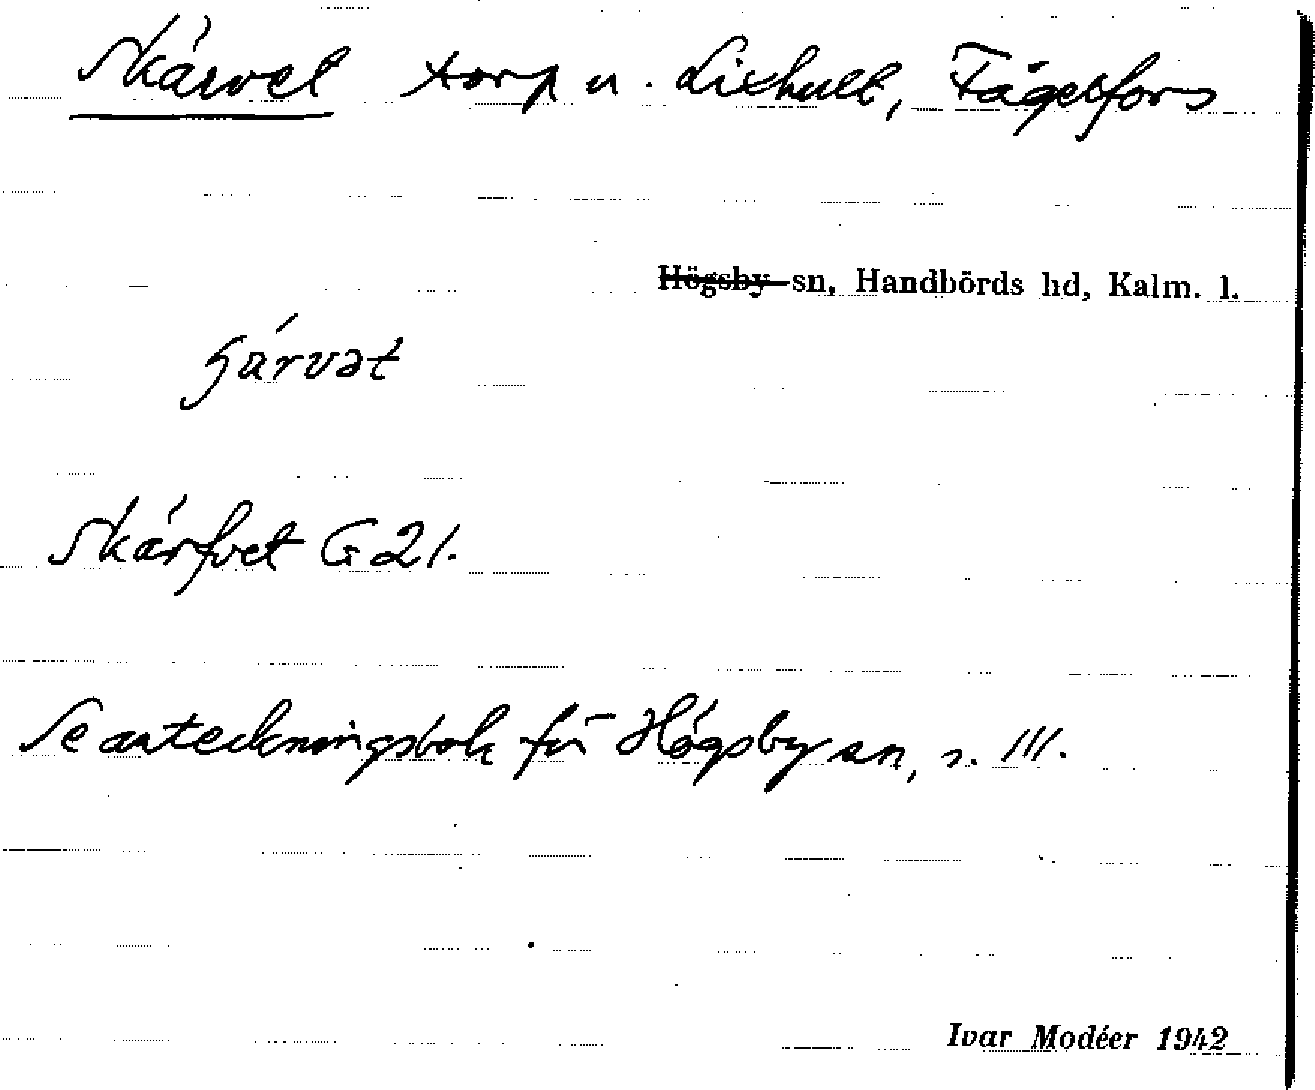 Skärvet torp u. Lixhult, Fågelfors
Högsby sn, Handbörds hd, Kalm. l.
ʃärvət
Skärfvet G 21.
Se anteckningsbok för Högsby sn, s. 111.
Ivar Modéer 1942